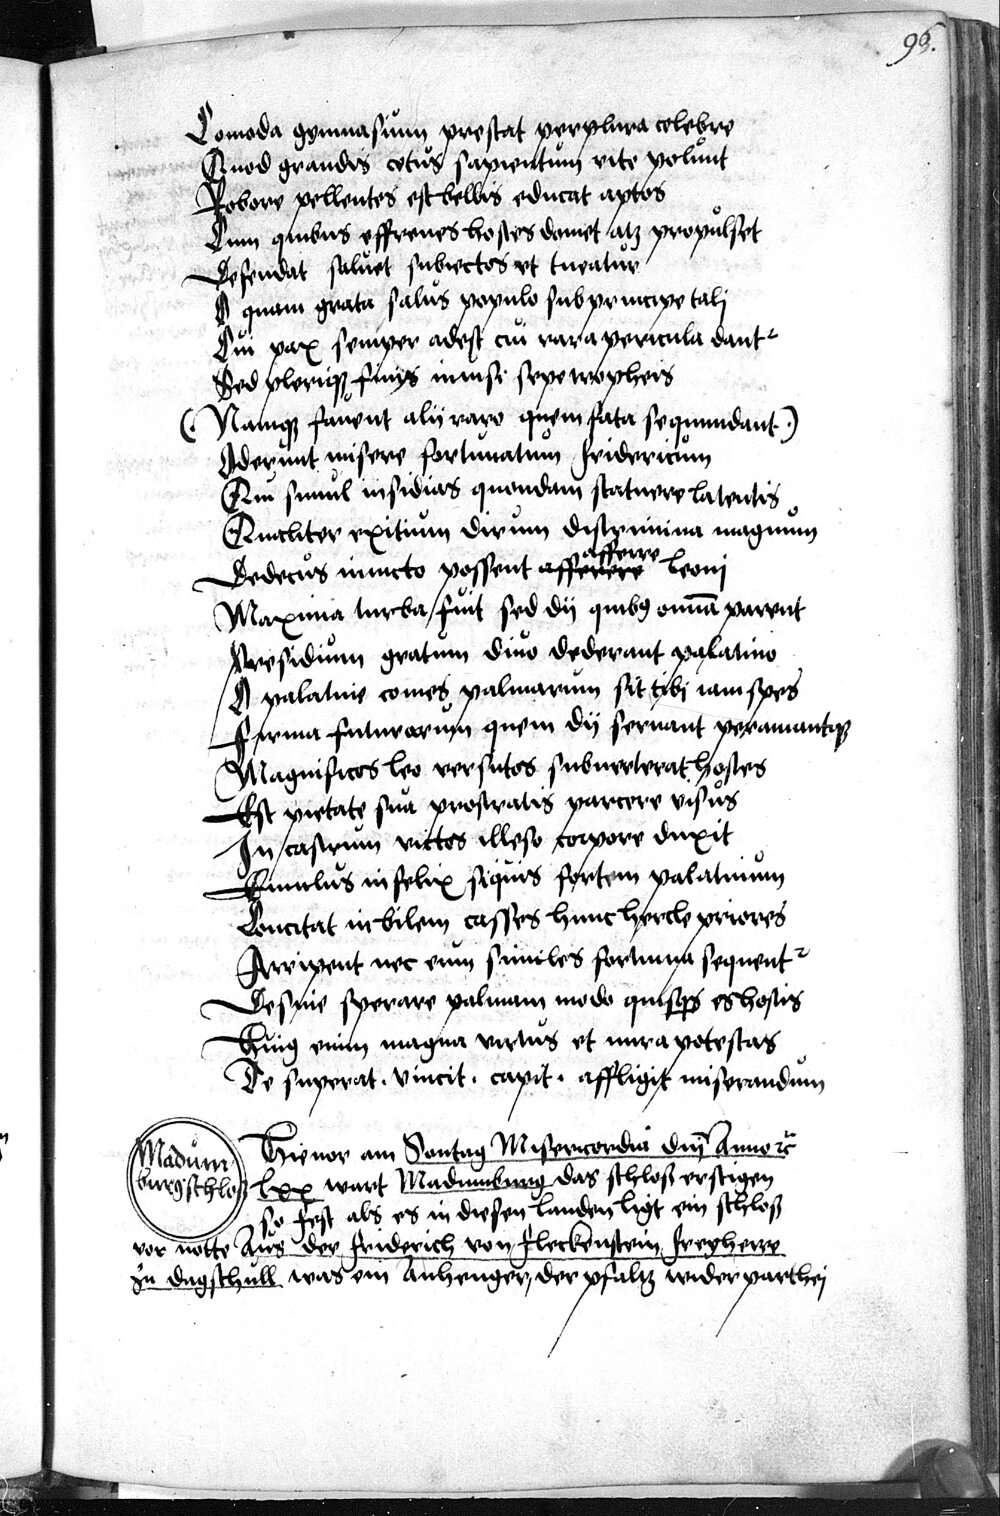 96.
Comoda gymnasium prestat perplura celebre
Quod grandis cetus sapientum rite polunt
Robore pellentes est bellis educat aptos
Cum quibus effrenes hostes domet atz propulset
Defendat saluet subiectos et tueatur
O quam grata salus populo sub principe talj
Cui pax semper adest cui rara pericula dant2
Sed pleriqz finijs sepe
(. Namqz fauent alij raro quem fata sequundant .)
Oderunt misere fortunatum fridericum
Qui simul insidias quondam statuere latentis
Qualiter exitium dirum discrimina magnum
Dedecus inuicto possent afferre afferere leonj
Maxima turba fuit sed dij quib9 omnia parent
Presidium gratum diuo dederant palatino
O palatine comes palmarum sit tibj iam spes
Firma futurorum quem dij seruant peramantqz
Magnificos leo versutos subuerterat hostes
Est pietate sua prostratis parcere visus
In castrum victos illeso corpore duxit
Emulus infelix siquis fortem palatinum
Concitat in bilem casses hunc hercle priores
Arripent nec eum similes fortuna sequent2
Desine sperare palmam modo quisqs es hostis
Huig enim magna virtus et mira potestas
Te superat . vincit . capit . affligit miserandum
Madum
burg schlos
Hieuor am Sontag Misericordia dnj Anno rc
lxx wart Madumburg das schloß erstigen
so fest als es in diesen landen ligt ein schloß
vor notte Aus der friderich von fleckenstein freyherre
zu dagschull was ein Anhenger der pfaltz widerparthej